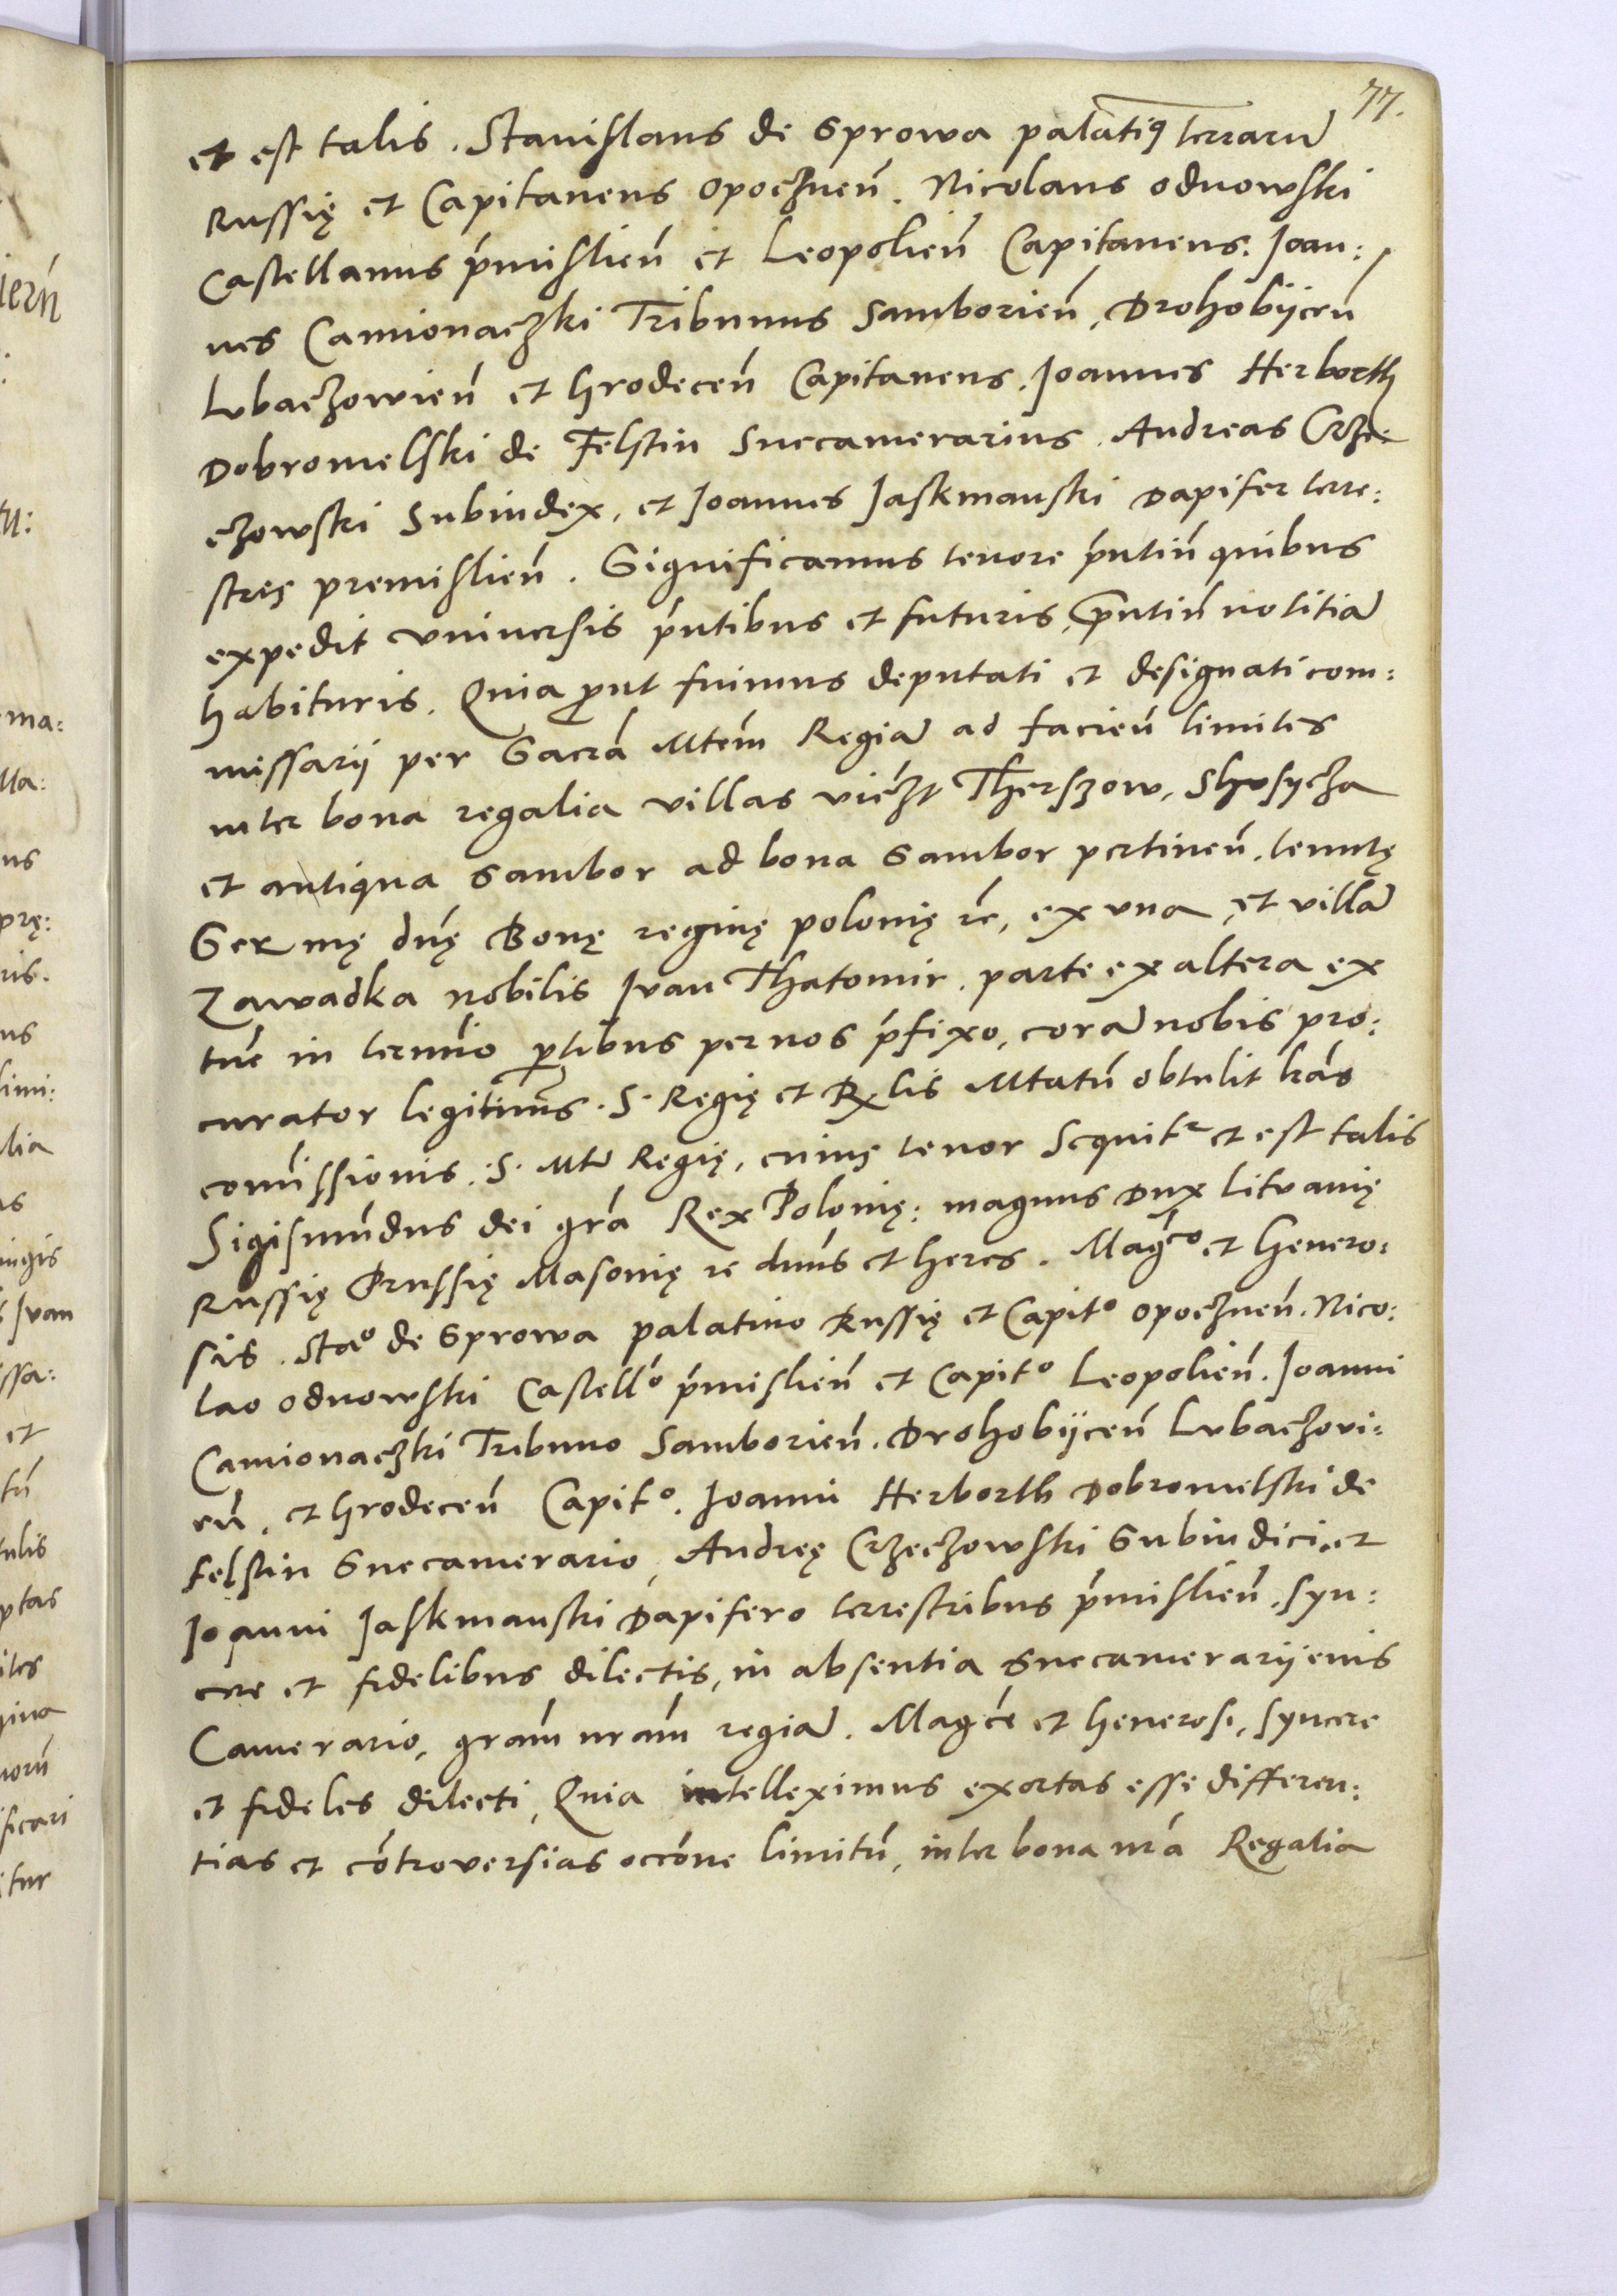 77.
et est talis. Stanislaus de Sprowa palatiꝯ terrarū
Russię et Capitaneus opocznen̄. Nicolaus odnowski
Castellanus p̄mislien̄ et Leopolien̄ Capitaneus. Joan:
nes Camionaczki Tribunus Samborien̄, Drohobijcen̄
Lvbaczowien̄ et hrodecen̄ Capitaneus. Joannes Herborth
Dobromelski de Felstin Succamerarius. Andreas Crze
czowski Subiudex, et Joannes Jaskmanski Dapifer terre:
stres premislien̄. Significamus tenore p̄ntiū quibus
expedit vniuersis p̄ntibus et futuris, p̄ntiū notitiā
habituris. Quia prout fuimus deputati et designati com:
missarij per Sacrā Mtēm Regiā ad facien̄ limites
inter bona regalia villas viczt Therszow, Shosycza
et antiqua Sambor ad bona Sambor pertinen̄, tenutę
Ser mę dn̄ę Bonę reginę polonię rc̄, ex vna, et villā
Zawadka nobilis Jvan Thatomir, parte ex altera ex
tūc in termīo ꝑtibus per nos p̄fixo, corā nobis pro:
curator legitimꝰs. S. Regię et Rx̄lis Mtatū obtulit lr̄as
comīssionis. S. Mtī Regię, cuius tenor Sequitr et est talis
Sigismūdus dei grā Rex Polonię: magnus Dux litvanię
Russię Prussię Masonię rc dnūs et heres. Magco et Genero:
sis. Stāo de Sprowa palatino Russię et Capito opocznen̄. Nico:
lao odnowski Castell̄o p̄mislien̄ et Capito Leopolien̄. Joanni
Camionaczki Tribuno Samborien̄. Drohobijcen̄ Lvbaczovi:
en̄, et hrodecen̄ Capito. Joanni Herborth Dobromelski de
felstin Succamerario, Andreę Crzeczowski Subiudici, et
Joanni Jaskmanski Dapifero terrestribus p̄mislien̄, syn:
cere et fidelibus dilectis, in absentia Succamerarij eius
Camerario, grām nrām regiā. Magcē et Generosi, syncere
et fideles dilecti, Quia intelleximus exortas esse differen:
tias et cōtroversias occōne limitū, inter bona nrā Regalia